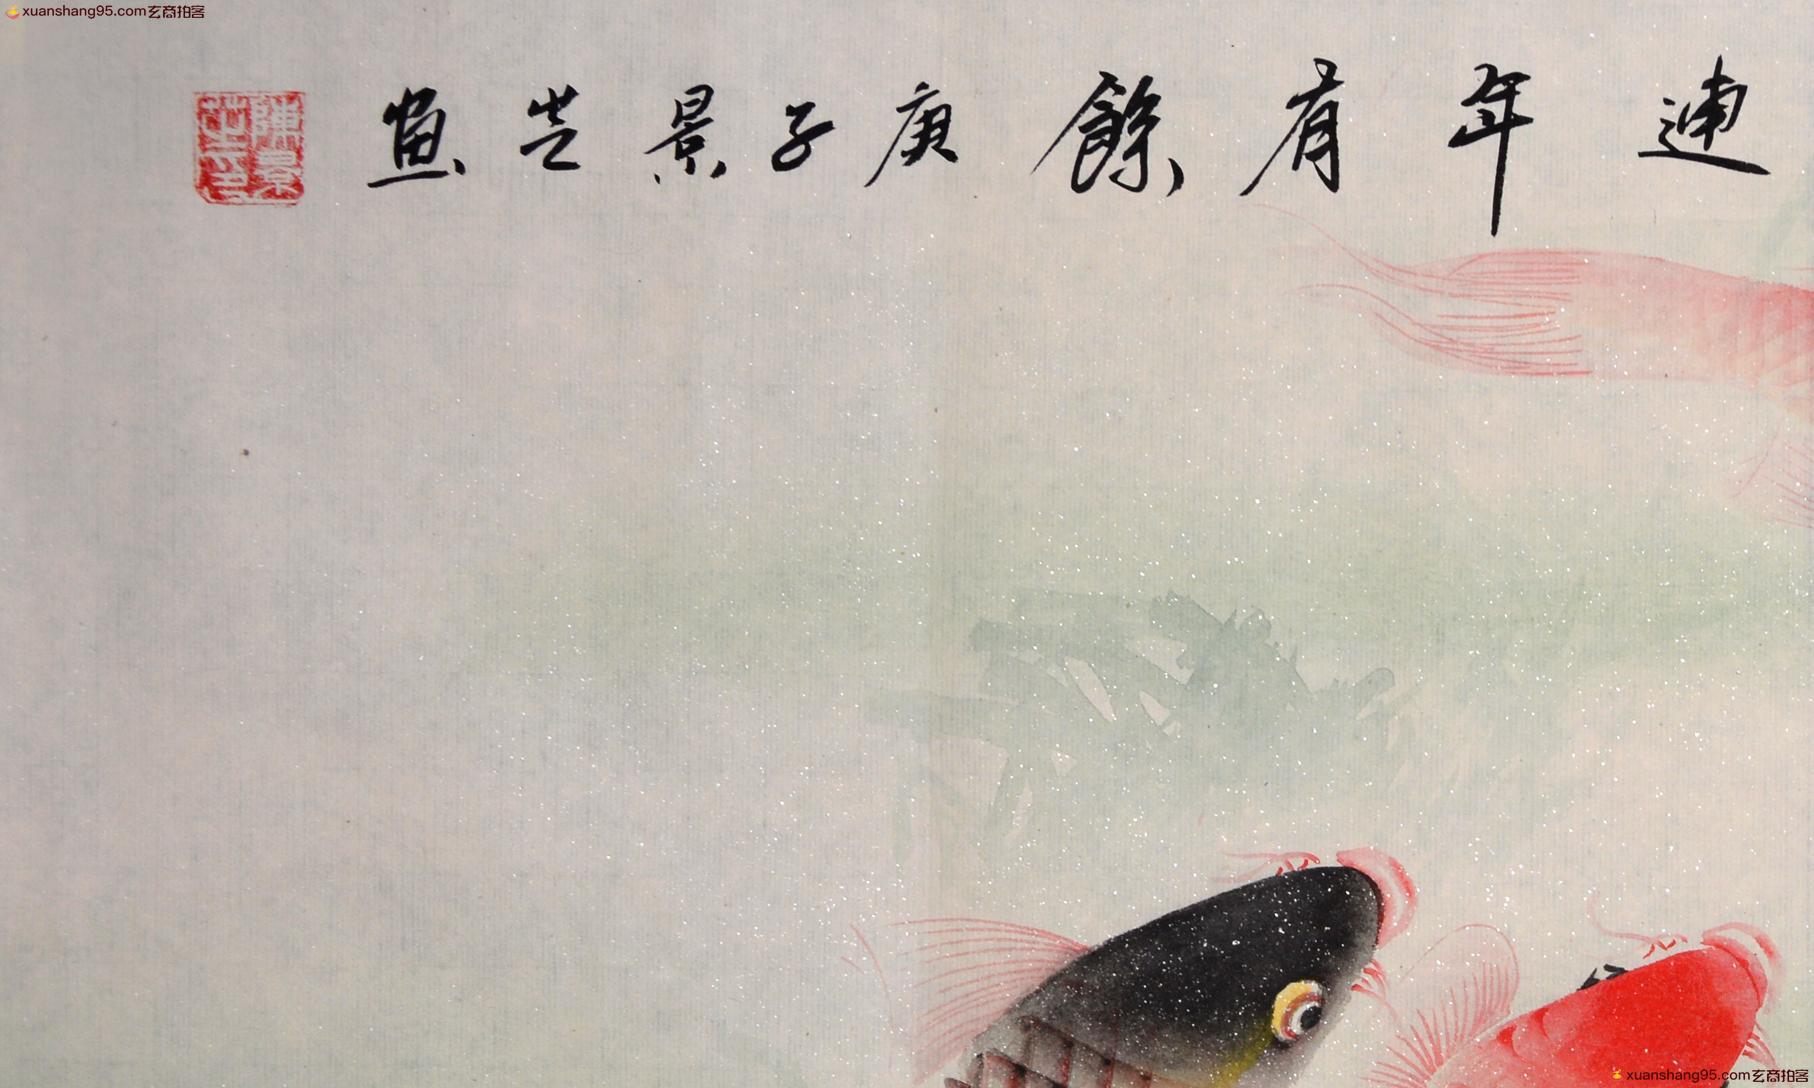 xuanshang95.com玄商拍客
連年有餘 庚子景芝畫
陳景芝印
xuanshang95.com玄商拍客